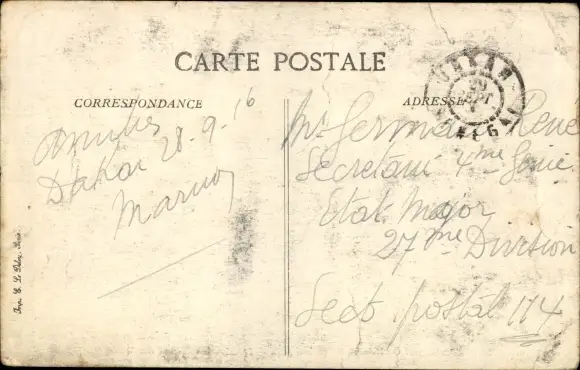 CARTE POSTALE
CORRESPONDANCE
Amitiés
Dakar 28-9-16
ADRESSE
DAKAR
SEPT
SENEGAL
Mr Germain René
Secrétaire 4me Génie
Etat Major
27me Division
Sect postal 114